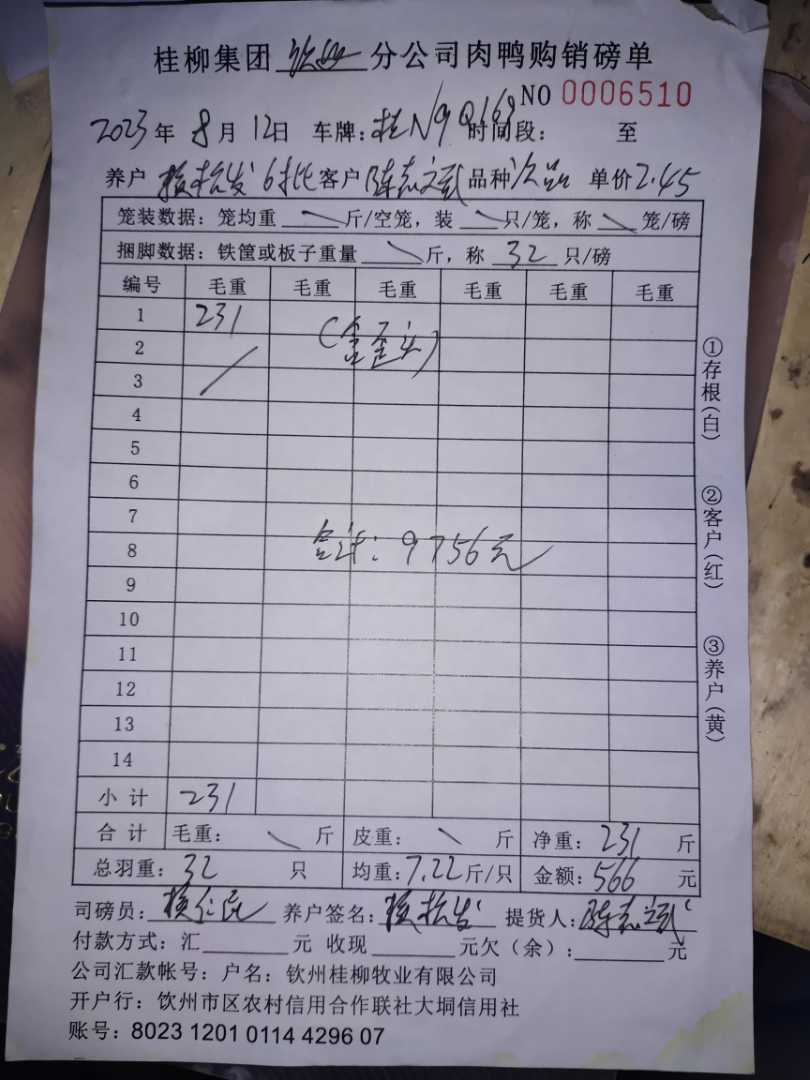 桂柳集团 钦州 分公司肉鸭购销磅单
NO 0006510
2023年 8月 12日 车牌:桂N9Q169 时间段: 至
养户 发6批 客户 陈志斌 品种 次品 单价 2.45
笼装数据:笼均重 斤/空笼,装 只/笼,称 笼/磅
捆脚数据:铁筐或板子重量 斤,称 32 只/磅
编号 毛重 毛重 毛重 毛重 毛重 毛重
1 231
2 (歪头)
3
4
5
6
7
8 合计:9756元
9
10
11
12
13
14
小计 231
合计 毛重: 斤 皮重: 斤 净重:231 斤
总羽重:32 只 均重:7.22斤/只 金额:566 元
司磅员: 养户签名: 提货人:陈志斌
付款方式:汇 元 收现 元欠(余): 元
公司汇款帐号:户名:钦州桂柳牧业有限公司
开户行:钦州市区农村信用合作联社大垌信用社
账号:8023 1201 0114 4296 07
①存根(白)
②客户(红)
③养户(黄)